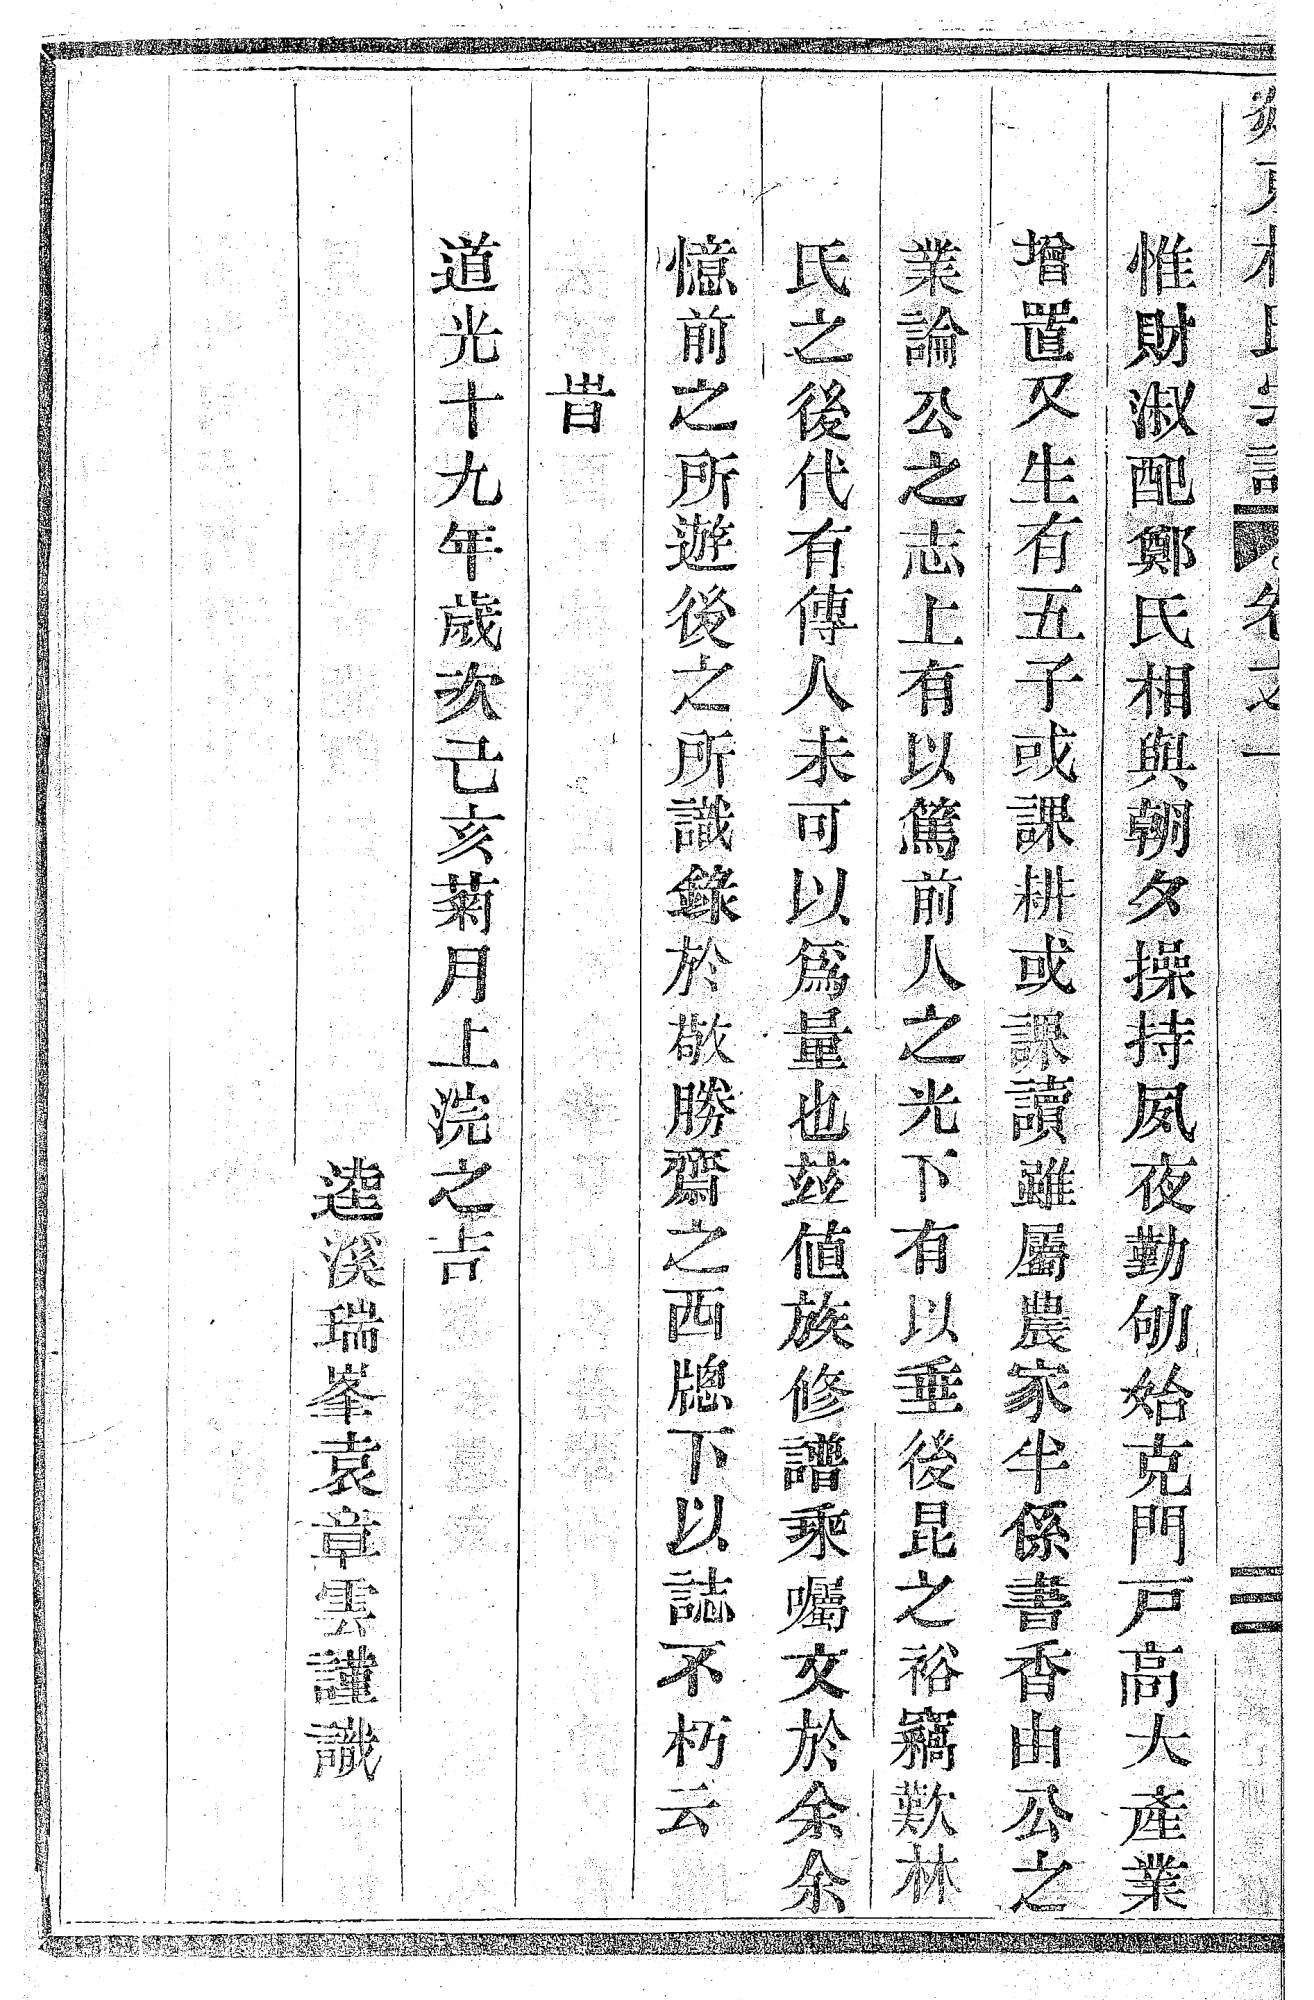 林氏宗譜 卷之一 三
惟財淑配鄭氏相與朝夕操持夙夜勤劬始克門戸高大產業
增置又生有五子或課耕或課讀雖屬農家半係書香由公之
業論公之志上有以篤前人之光下有以垂後昆之裕竊歎林
氏之後代有傳人未可以爲量也茲値族修譜乘囑文於余余
憶前之所遊後之所識錄於敬勝齋之西牕下以誌不朽云
旹
道光十九年歲次己亥菊月上浣之吉
逵溪瑞峯袁章雲謹識